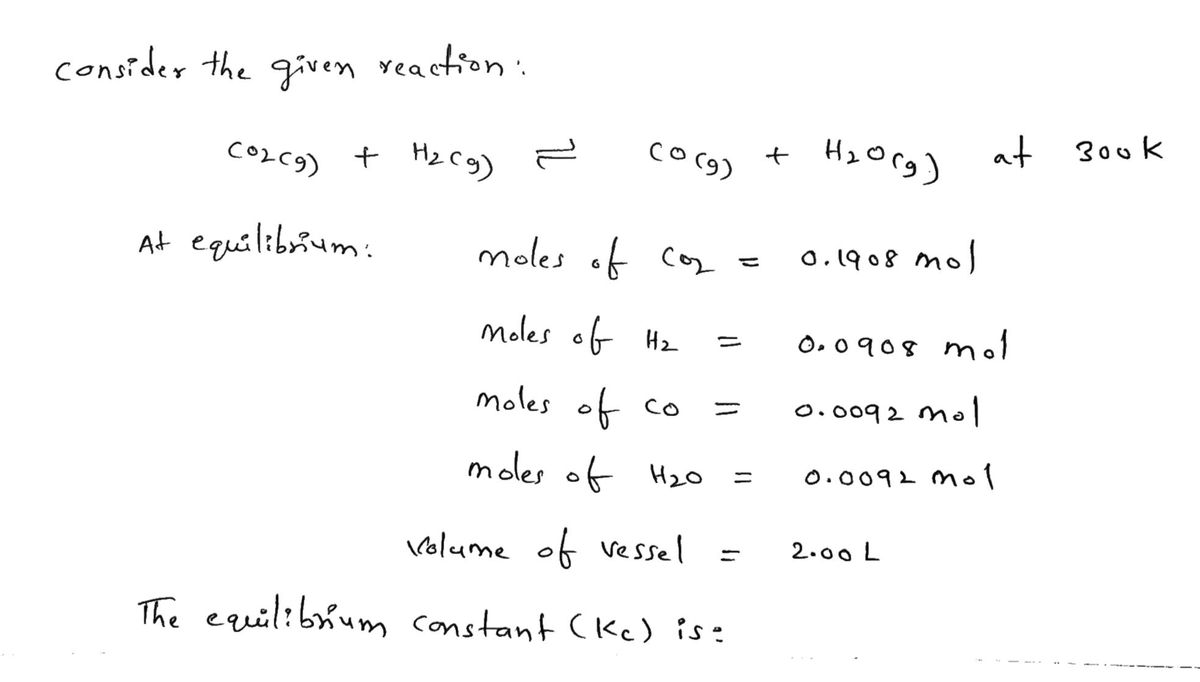 consider the given reaction:
CO2(g) + H2(g) ⇌ CO(g) + H2O(g) at 300K
At equilibrium: moles of CO2 = 0.1908 mol
moles of H2 = 0.0908 mol
moles of CO = 0.0092 mol
moles of H2O = 0.0092 mol
Volume of vessel = 2.00 L
The equilibrium constant (Kc) is: